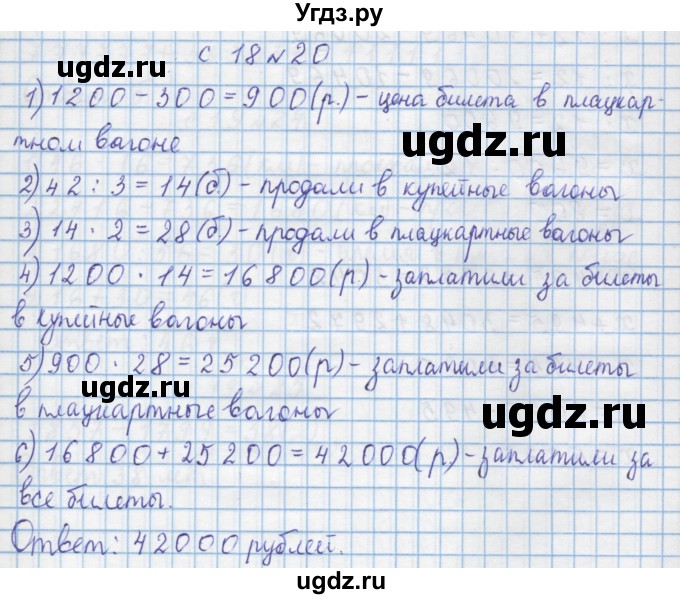 Угдз.ру
с 18 № 20
ugdz.ru
1) 1200 - 300 = 900 (р.) - цена билета в плацкар-
ugdz.ru
тном вагоне
2) 42 : 3 = 14 (б.) - продали в купейные вагоны
3) 14 · 2 = 28 (б) - продали в плацкартные вагоны
4) 1200 · 14 = 16800 (р) - заплатили за билеты
в купейные вагоны
5) 900 · 28 = 25200 (р) - заплатили за билеты
ugdz.ru
в плацкартные вагоны
ugdz.ru
6) 16800 + 25200 = 42000 (р) - заплатили за
все билеты.
Ответ: 42000 рублей.
ugdz.ru